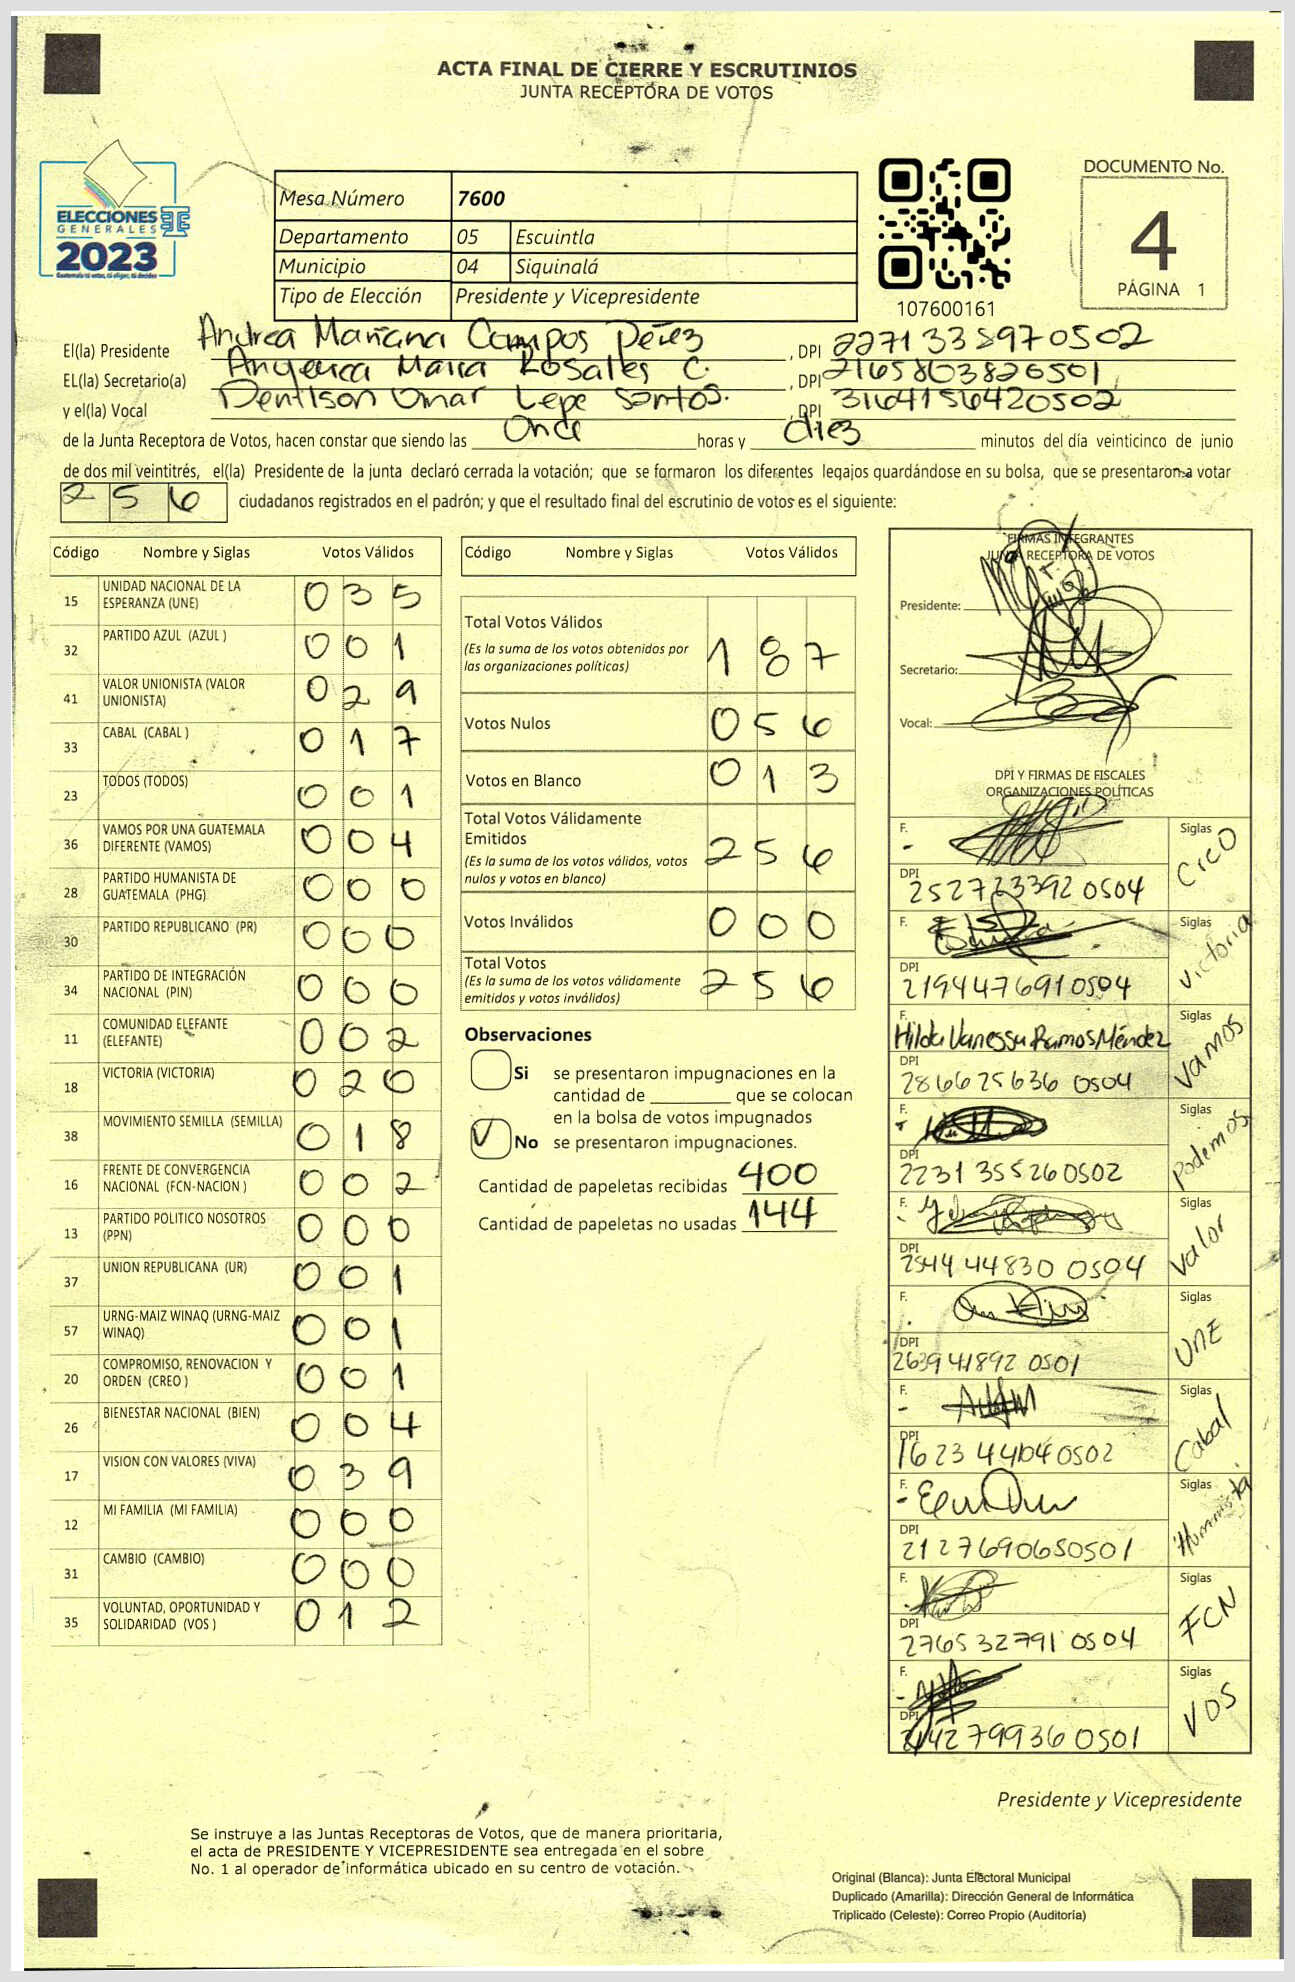 ACTA FINAL DE CIERRE Y ESCRUTINIOS
JUNTA RECEPTORA DE VOTOS
ELECCIONES
GENERALES
2023
Guatemala tú votas, tú eliges, tú decides
Mesa Número 7600
Departamento 05 Escuintla
Municipio 04 Siquinalá
Tipo de Elección Presidente y Vicepresidente
107600161
DOCUMENTO No.
4
PÁGINA 1
El(la) Presidente Andrea Mariana Campos Pérez, DPI 2271338970502
EL(la) Secretario(a) Angelica Maria Rosales C., DPI 2165803820501
y el(la) Vocal Denilson Omar Lepe Santos., DPI 3164156420502
de la Junta Receptora de Votos, hacen constar que siendo las Once horas y diez minutos del día veinticinco de junio
de dos mil veintitrés, el(la) Presidente de la junta declaró cerrada la votación; que se formaron los diferentes legajos quardándose en su bolsa, que se presentaron a votar
256 ciudadanos registrados en el padrón; y que el resultado final del escrutinio de votos es el siguiente:
Código Nombre y Siglas Votos Válidos
15 UNIDAD NACIONAL DE LA ESPERANZA (UNE) 035
32 PARTIDO AZUL (AZUL ) 001
41 VALOR UNIONISTA (VALOR UNIONISTA) 029
33 CABAL (CABAL ) 017
23 TODOS (TODOS) 001
36 VAMOS POR UNA GUATEMALA DIFERENTE (VAMOS) 004
28 PARTIDO HUMANISTA DE GUATEMALA (PHG) 000
30 PARTIDO REPUBLICANO (PR) 000
34 PARTIDO DE INTEGRACIÓN NACIONAL (PIN) 000
11 COMUNIDAD ELEFANTE (ELEFANTE) 002
18 VICTORIA (VICTORIA) 020
38 MOVIMIENTO SEMILLA (SEMILLA) 018
16 FRENTE DE CONVERGENCIA NACIONAL (FCN-NACION ) 002
13 PARTIDO POLITICO NOSOTROS (PPN) 000
37 UNION REPUBLICANA (UR) 001
57 URNG-MAIZ WINAQ (URNG-MAIZ WINAQ) 001
20 COMPROMISO, RENOVACION Y ORDEN (CREO ) 001
26 BIENESTAR NACIONAL (BIEN) 004
17 VISION CON VALORES (VIVA) 039
12 MI FAMILIA (MI FAMILIA) 000
31 CAMBIO (CAMBIO) 000
35 VOLUNTAD, OPORTUNIDAD Y SOLIDARIDAD (VOS ) 012
Código Nombre y Siglas Votos Válidos
Total Votos Válidos 187
(Es la suma de los votos obtenidos por
las organizaciones políticas)
Votos Nulos 056
Votos en Blanco 013
Total Votos Válidamente
Emitidos 256
(Es la suma de los votos válidos, votos
nulos y votos en blanco)
Votos Inválidos 000
Total Votos 256
(Es la suma de los votos válidamente
emitidos y votos inválidos)
Observaciones
Si se presentaron impugnaciones en la
cantidad de ________ que se colocan
en la bolsa de votos impugnados
✓ No se presentaron impugnaciones.
Cantidad de papeletas recibidas 400
Cantidad de papeletas no usadas 144
FIRMAS INTEGRANTES
JUNTA RECEPTORA DE VOTOS
Presidente:
Secretario:
Vocal:
DPI Y FIRMAS DE FISCALES
ORGANIZACIONES POLÍTICAS
F. Siglas
DPI 2527233920504
F. Siglas Victoria
DPI 2194476910504
F. Hilda Vanessa Ramos Méndez Siglas Vamos
DPI 2866256360504
F. Siglas Podemos
DPI 2231355260502
F. Siglas Valor
DPI 2544448300504
F. Siglas UNE
DPI 2639418920501
F. Siglas Cabal
DPI
F. Siglas Humanista
DPI 2127690650501
F. Siglas FCN
DPI 2765327910504
F. Siglas VOS
DPI
Presidente y Vicepresidente
Se instruye a las Juntas Receptoras de Votos, que de manera prioritaria,
el acta de PRESIDENTE Y VICEPRESIDENTE sea entregada en el sobre
No. 1 al operador de informática ubicado en su centro de votación.
Original (Blanca): Junta Electoral Municipal
Duplicado (Amarilla): Dirección General de Informática
Triplicado (Celeste): Correo Propio (Auditoría)